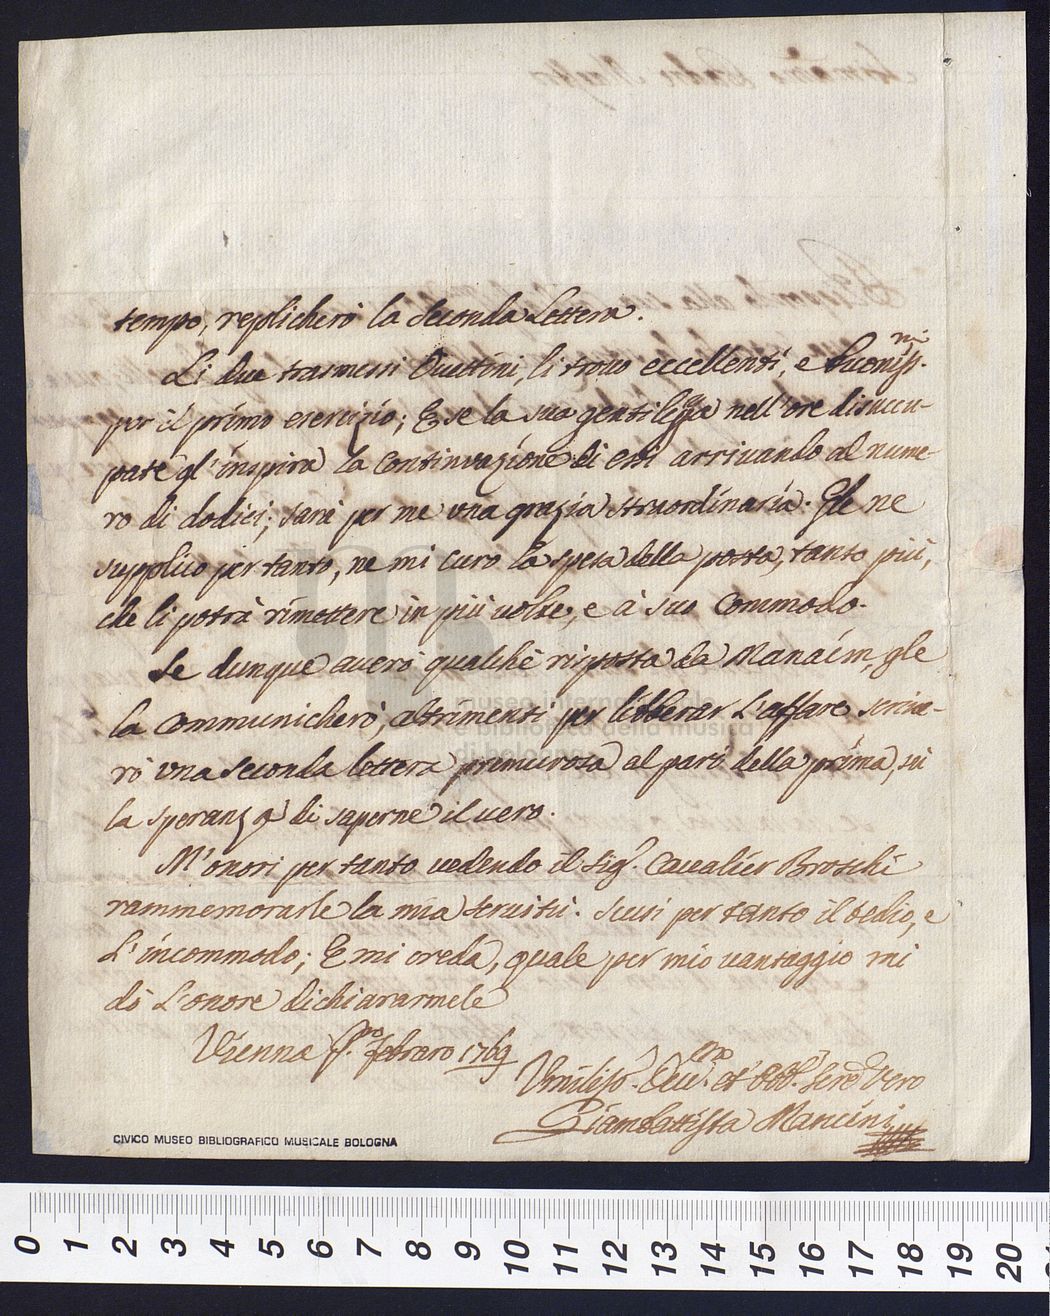 tempo, replicherò la seconda Lettera.
Li due trasmessi Duettini, li trovo eccellenti, e buonissmi
per il primo esercizio; E se la sua gentilezza nell'ore disuccu-
pate gl'inspira la continuazione di essi arrivando al nume-
ro di dodici; sarà per me una grazia straordinaria. Gle ne
supplico per tanto, ne mi curo la spesa della posta, tanto più,
che li potrà rimettere in più volte, e à suo commodo.
Se dunque averò qualche risposta da Manaim, gle
la communicherò, altrimenti per libberar L'affare scrive-
rò una seconda lettera premurosa al parò della prima, sù
la speranza di saperne il vero.
M'onori per tanto vedendo il Sigr. Cavalier Broschi
rammemorarle la mia servitù. Scusi per tanto il tedio, e
L'incommodo; E mi creda, quale per mio vantaggio mi
dò L'onore dichiararmele
Vienna Pmo Febraro
Umiliso. Devmo. et Obbl. Sere Vero
Giambattista Mancini
CIVICO MUSEO BIBLIOGRAFICO MUSICALE BOLOGNA
museo internazionale
e biblioteca della musica
di bologna
0 1 2 3 4 5 6 7 8 9 10 11 12 13 14 15 16 17 18 19 20